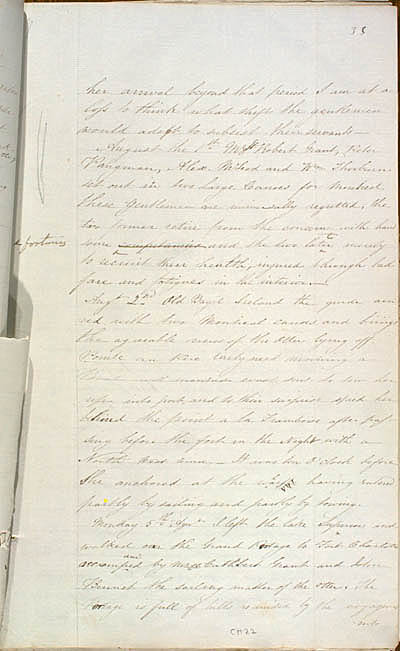 35
her arrival beyond that period I am at a
loss to think what shifts the gentlemen
would adopt to subsist their servants —
August the 1st Mess Robert Grant, Peter
Pangman, Alex McLeod and Wm Thorburn
set out in two large Canoes for Montreal
these Gentlemen are universally regretted, the
two former retire from the concern with hand
fortunes
some and the two later merely
to recruit their health, injured through bad
fare and fatigues in the interior —
Augt 2nd Old Ireland the guide arri
ved with two Montreal canoes and brings
the agreeable news of the Otter lying off
Pointe au Père early next morning a
canoes sent to tow her
up into port and to their surprise spied her
behind the point a la Framboise after pas
sing before the fort in the Night with a
North West wind — It was ten O'clock before
She anchored at the wharf having entered
partly by sailing and partly by towing.
Monday 5th I left the Lake Superior and
walked over the Grand Portage to Fort Charlotte
accompanied by Mess Cuthbert Grant and John
Bennet the sailing master of the Otter. The
Portage is full of hills is divided by the voyageurs
into
CH22